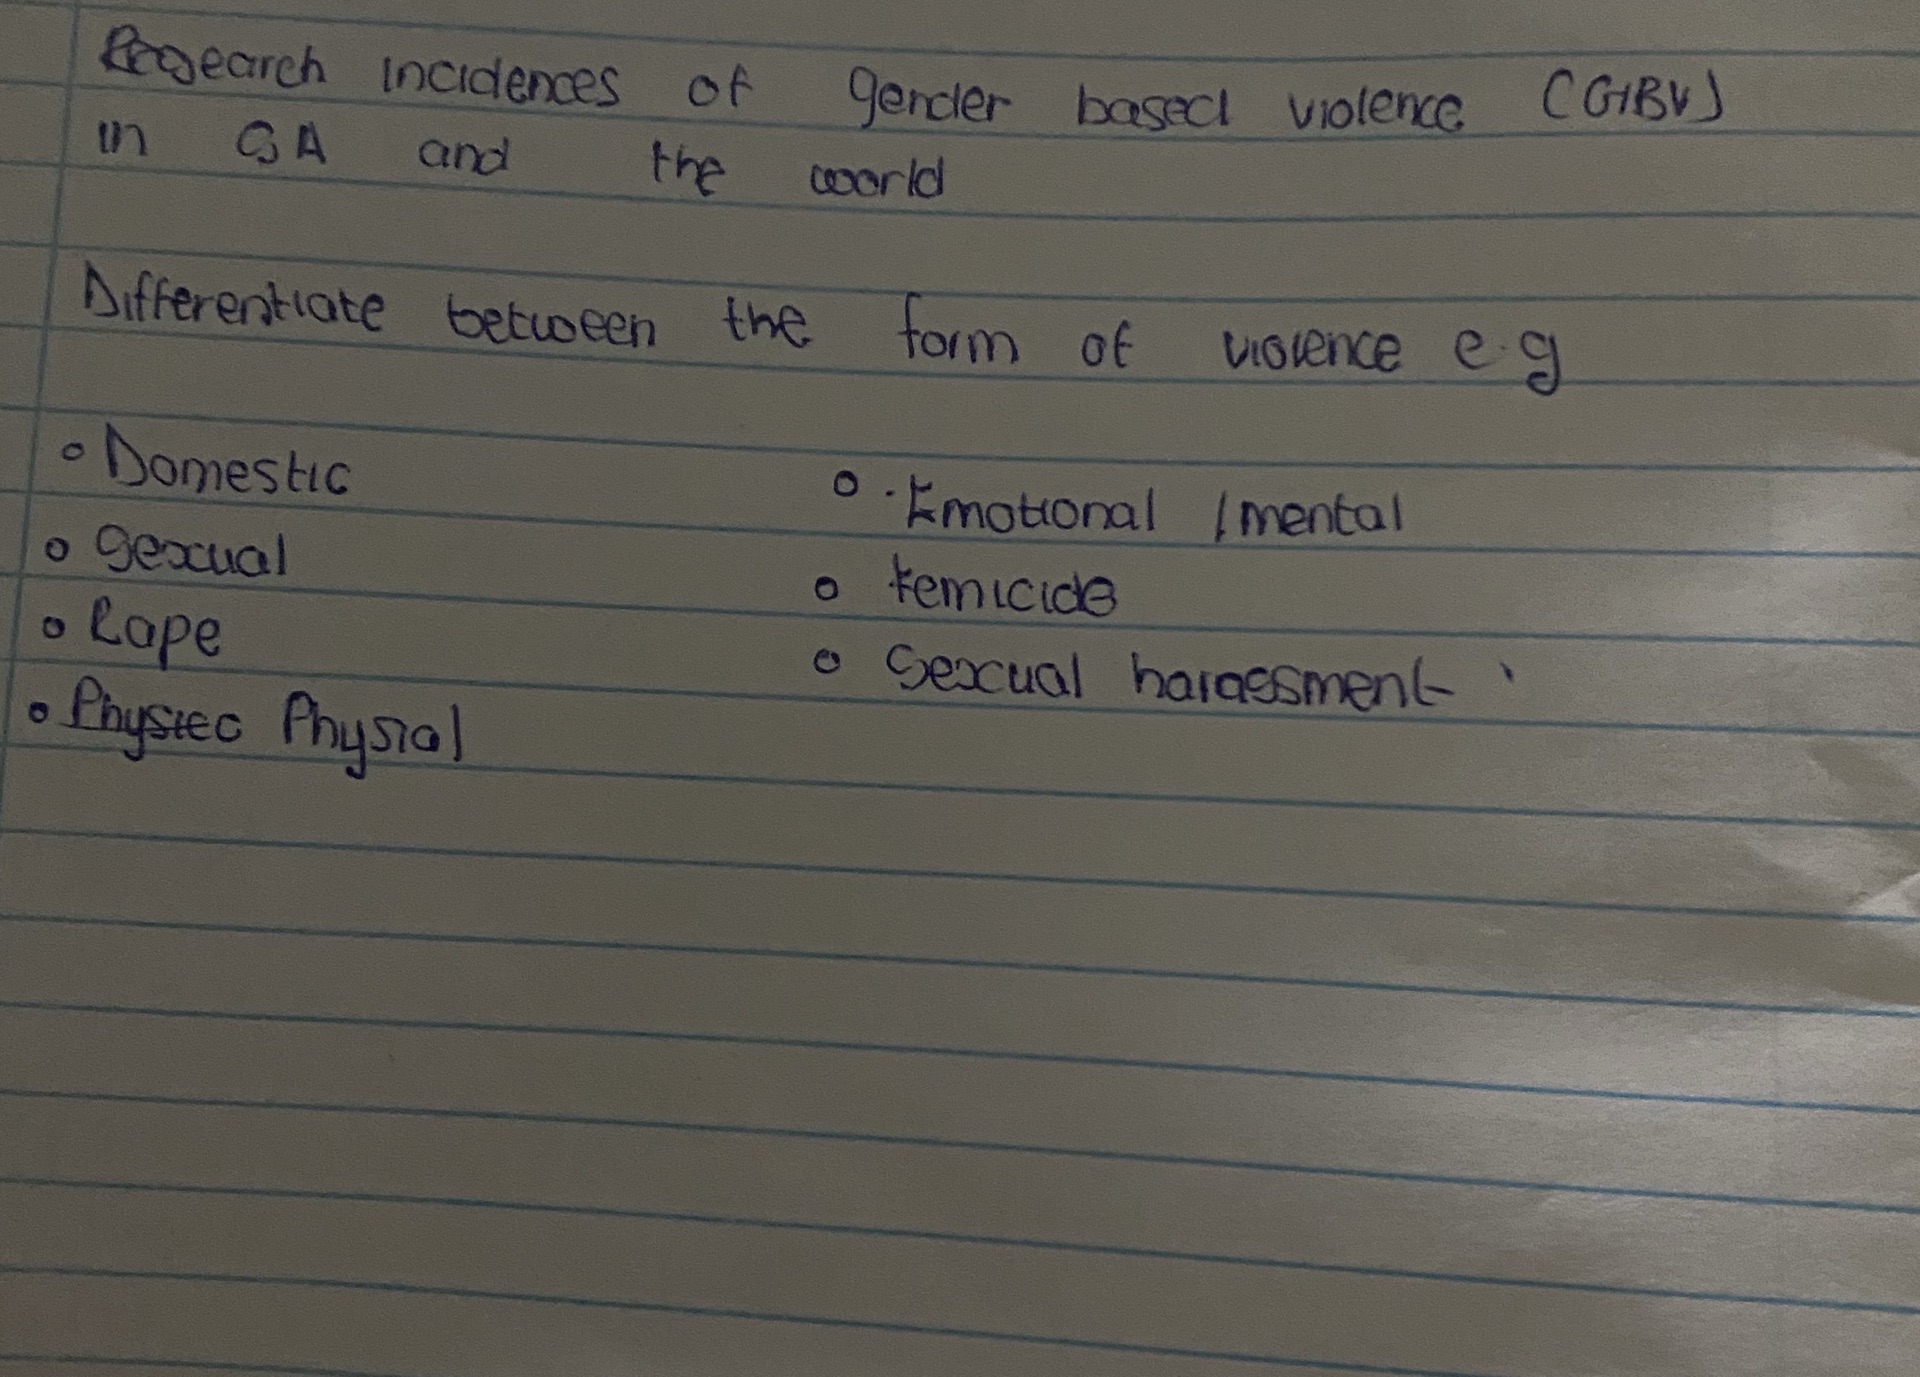 Research incidences of gender based violence (GBV)
in SA and the world
Differentiate between the form of violence e.g
• Domestic
• Sexual
• Rape
• Physiec Physial
• Emotional / mental
• Femicide
• Sexual harassment